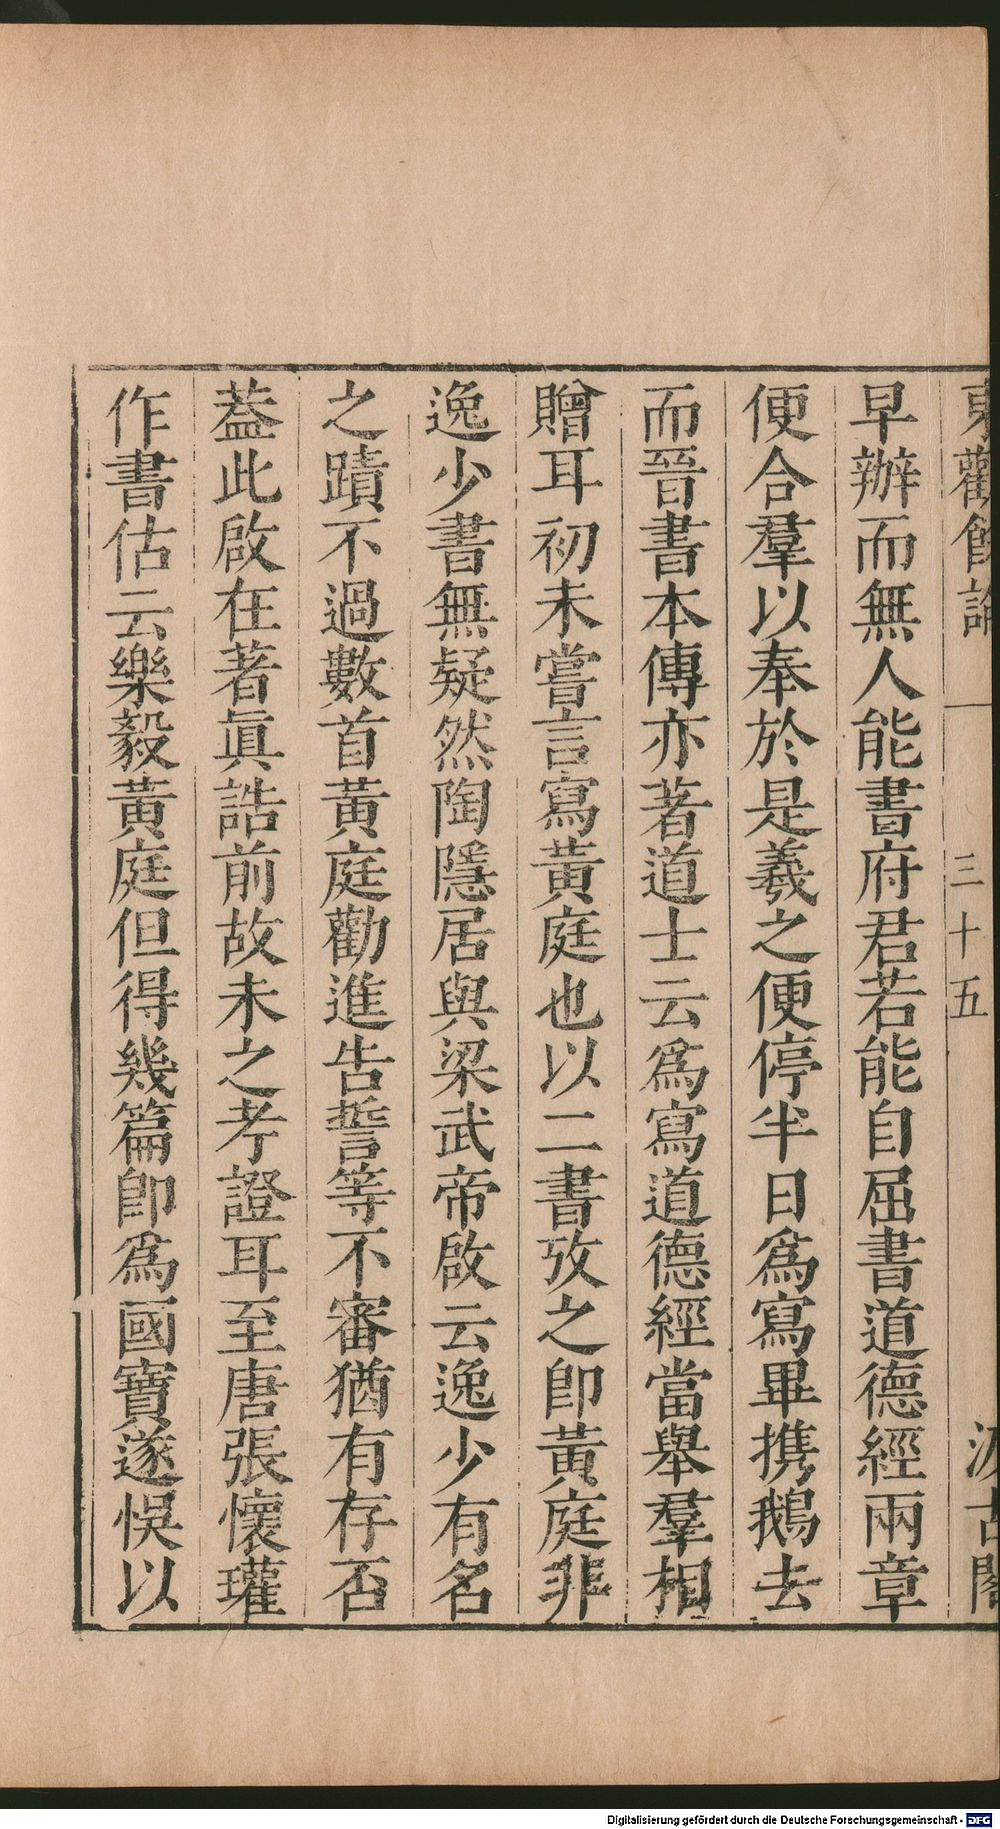 東觀餘論 三十五 汲古閣
早辦而無人能書府君若能自屈書道德經兩章
便合羣以奉於是羲之便停半日爲寫畢携鵝去
而晉書本傳亦著道士云爲寫道德經當舉羣相
贈耳初未嘗言寫黃庭也以二書攷之卽黃庭非
逸少書無疑然陶隱居與梁武帝啟云逸少有名
之蹟不過數首黃庭勸進告誓等不審猶有存否
葢此啟在著眞誥前故未之考證耳至唐張懷瓘
作書估云樂毅黃庭但得幾篇卽爲國寶遂悞以
Digitalisierung gefördert durch die Deutsche Forschungsgemeinschaft - DFG